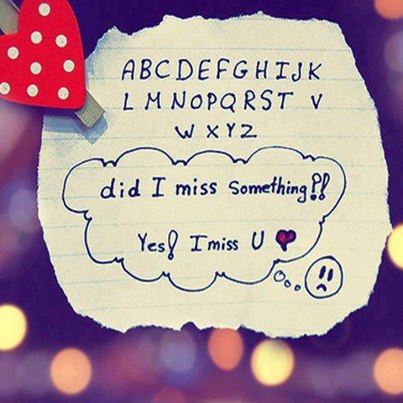 ABCDEFGHIJK
LMNOPQRST V
WXYZ
did I miss something?!
Yes! I miss U